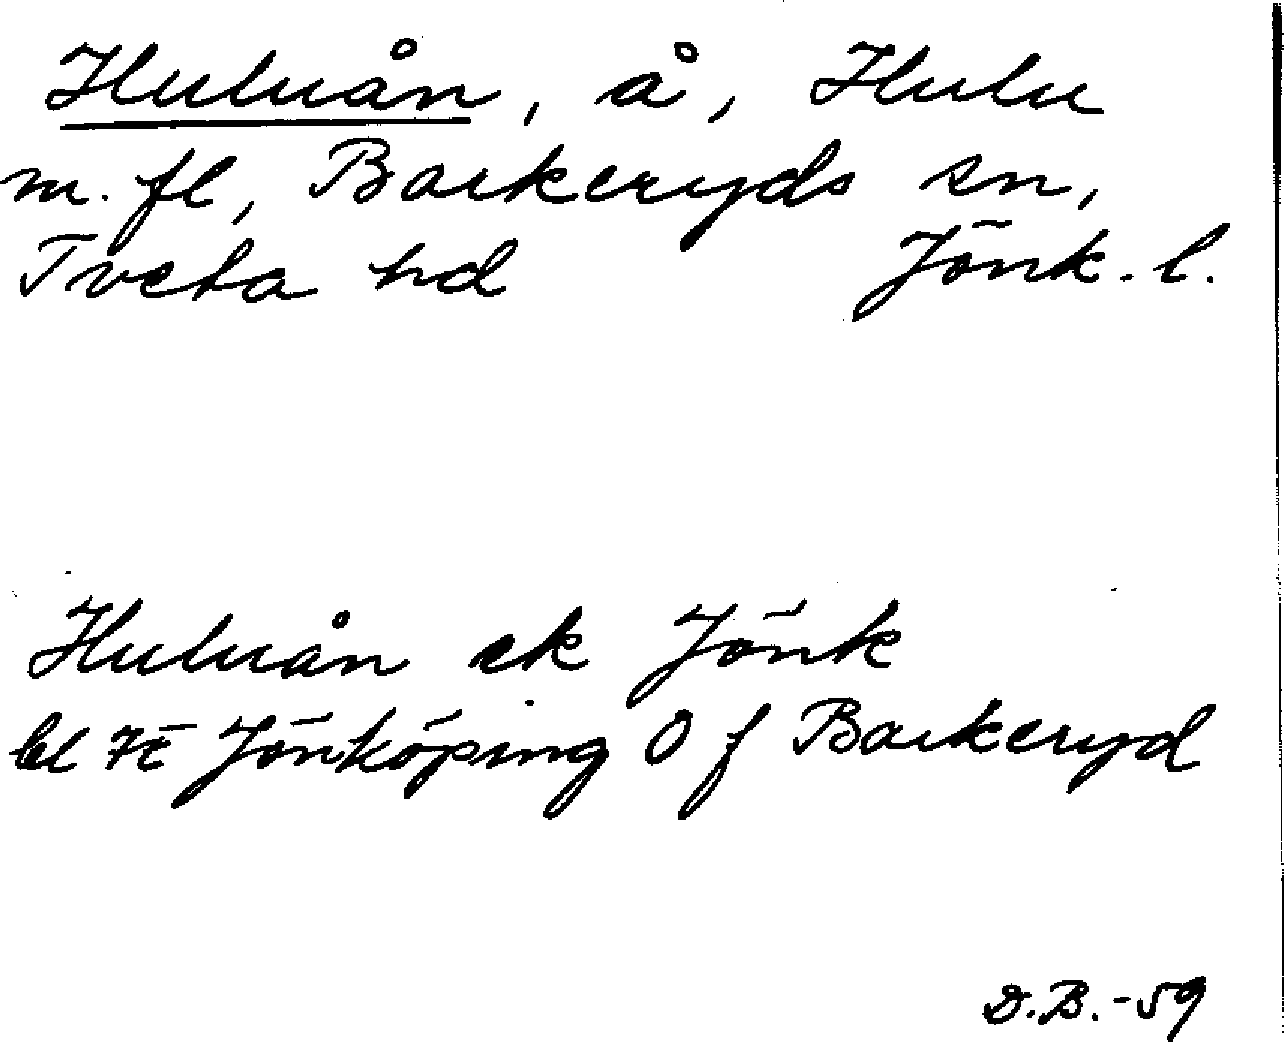 Huluån, å, Hulu
m. fl, Barkeryds sn,
Tveta hd Jönk. l.
Huluån ek Jönk
bl 7E Jönköping O f Barkeryd
D.B.-59